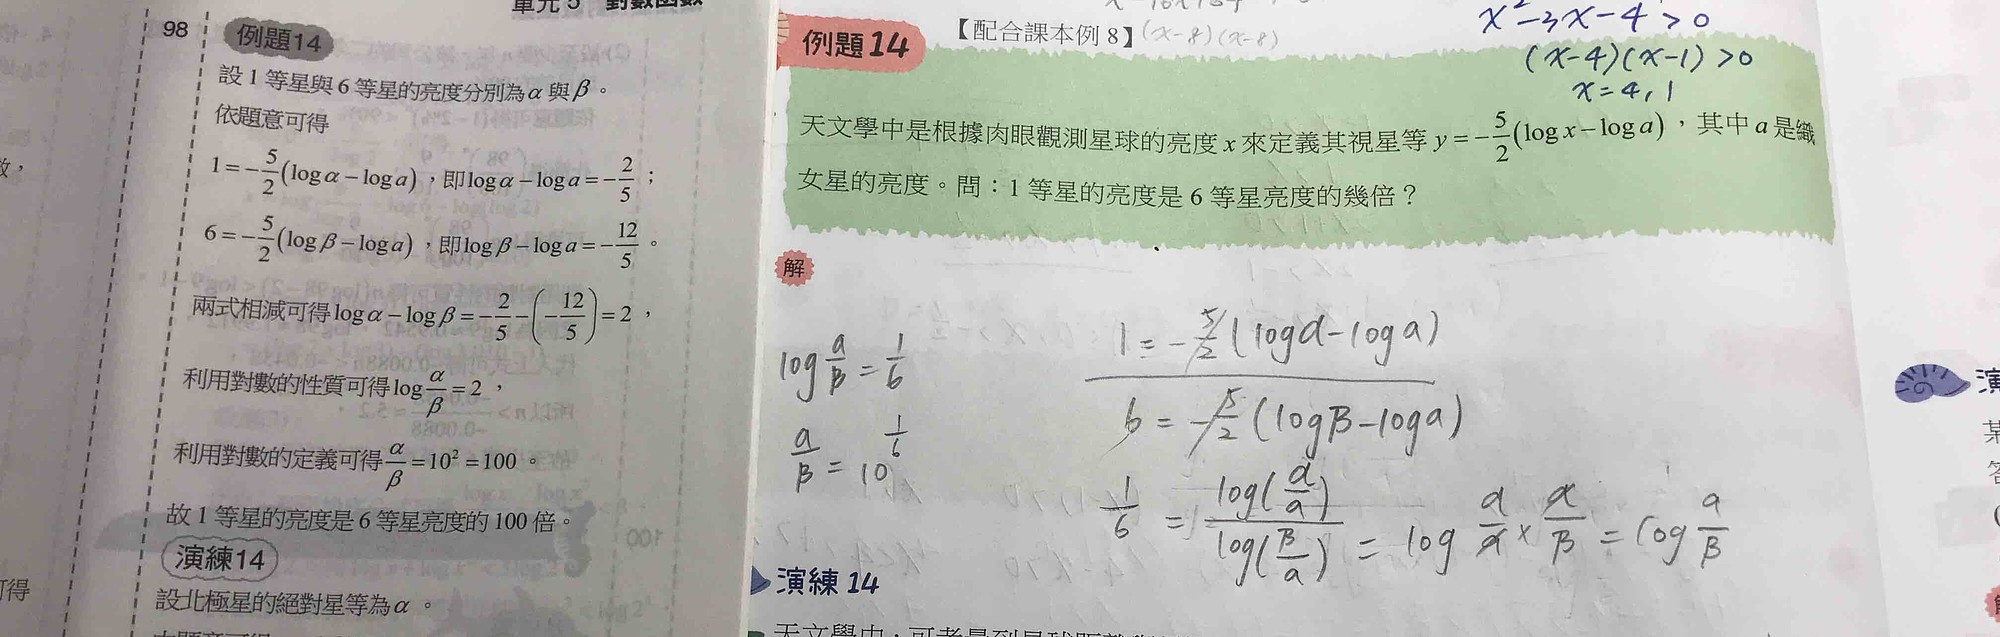 98
單元5 對數函數
例題14
設1等星與6等星的亮度分別為α與β。
依題意可得
1=-5/2(logα-loga),即logα-loga=-2/5;
6=-5/2(logβ-loga),即logβ-loga=-12/5。
兩式相減可得logα-logβ=-2/5-(-12/5)=2,
利用對數的性質可得logα/β=2,
利用對數的定義可得α/β=10²=100。
故1等星的亮度是6等星亮度的100倍。
演練14
設北極星的絕對星等為α。
可得
例題14
【配合課本例8】(x-8)(x-8)
x²-3x-4>0
(x-4)(x-1)>0
x=4,1
天文學中是根據肉眼觀測星球的亮度x來定義其視星等y=-5/2(logx-loga),其中a是織
女星的亮度。問:1等星的亮度是6等星亮度的幾倍?
解
log a/β = 1/6
a/β = 10^(1/6)
1=-5/2(logα-loga)
6=-5/2(logβ-loga)
1/6 = log(α/a)/log(β/a) = log α/a × a/β = log a/β
演練14